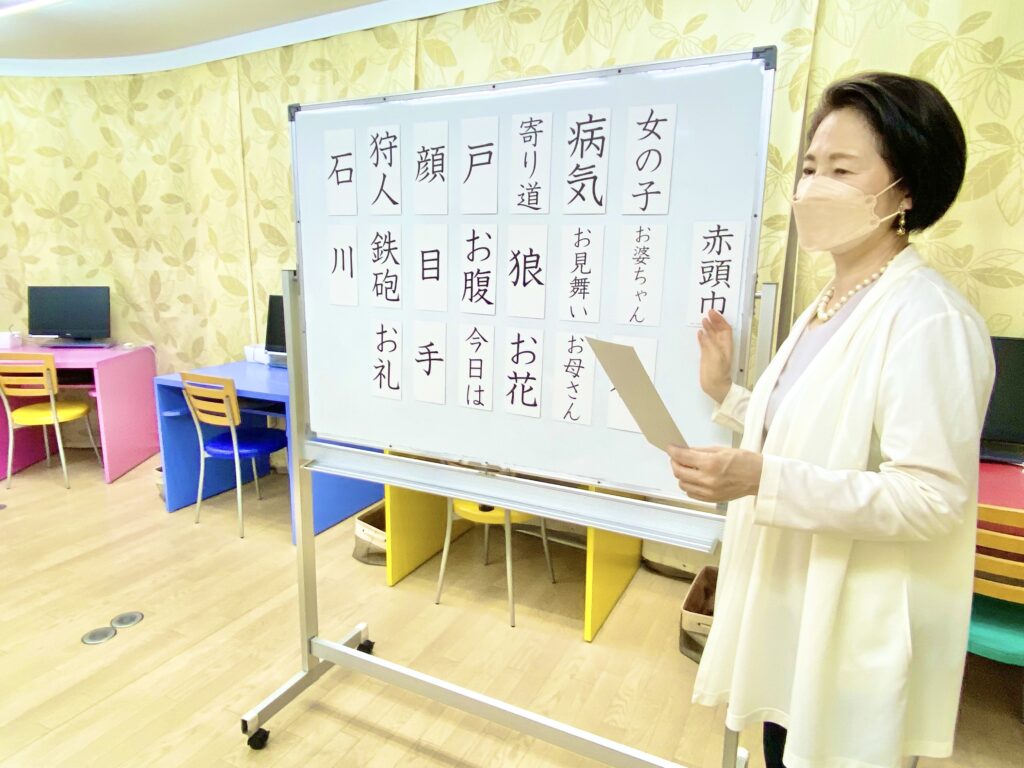 赤頭巾
女の子
お婆ちゃん
病気
お見舞い
お母さん
寄り道
狼
お花
戸
お腹
今日は
顔
目
手
狩人
鉄砲
お礼
石
川